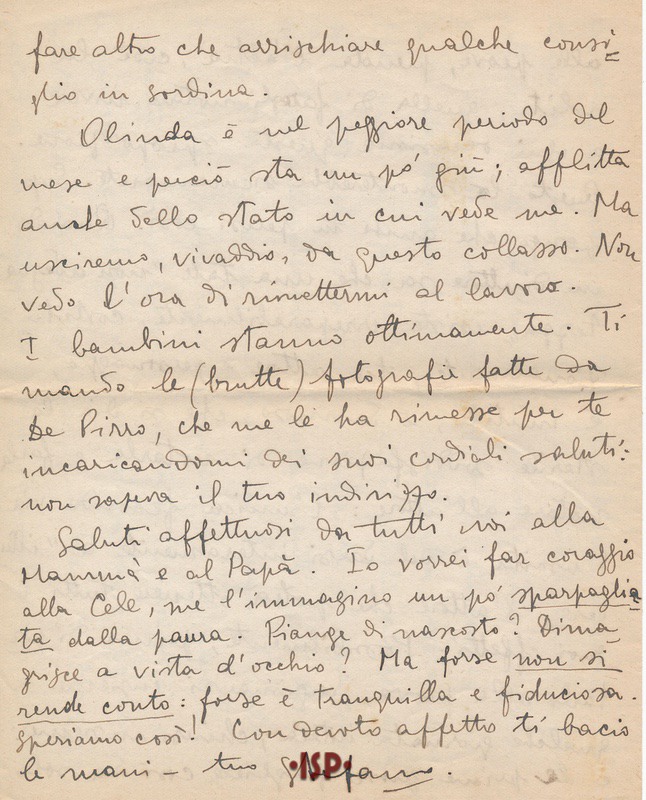 fare altro che arrischiare qualche consi=
glio in sordina.
Olinda è nel peggiore periodo del
mese e perciò sta un pò giù; afflitta
anche dello stato in cui vede me. Ma
usciremo, vivaddio, da questo collasso. Non
vedo l'ora di rimettermi al lavoro.
I bambini stanno ottimamente. Ti
mando le (brutte) fotografie fatte da
De Pirro, che me le ha rimesse per te
incaricandomi dei suoi cordiali saluti:
non sapeva il tuo indirizzo.
Saluti affettuosi da tutti noi alla
Mammà e al Papà. Io vorrei far coraggio
alla Cele, me l'immagino un pò sparpaglia
ta dalla paura. Piange di nascosto? Dima_
grisce a vista d'occhio? Ma forse non si
rende conto: forse è tranquilla e fiduciosa.
Speriamo così! Con devoto affetto ti bacio
le mani - tuo Stefano.
·ISP·